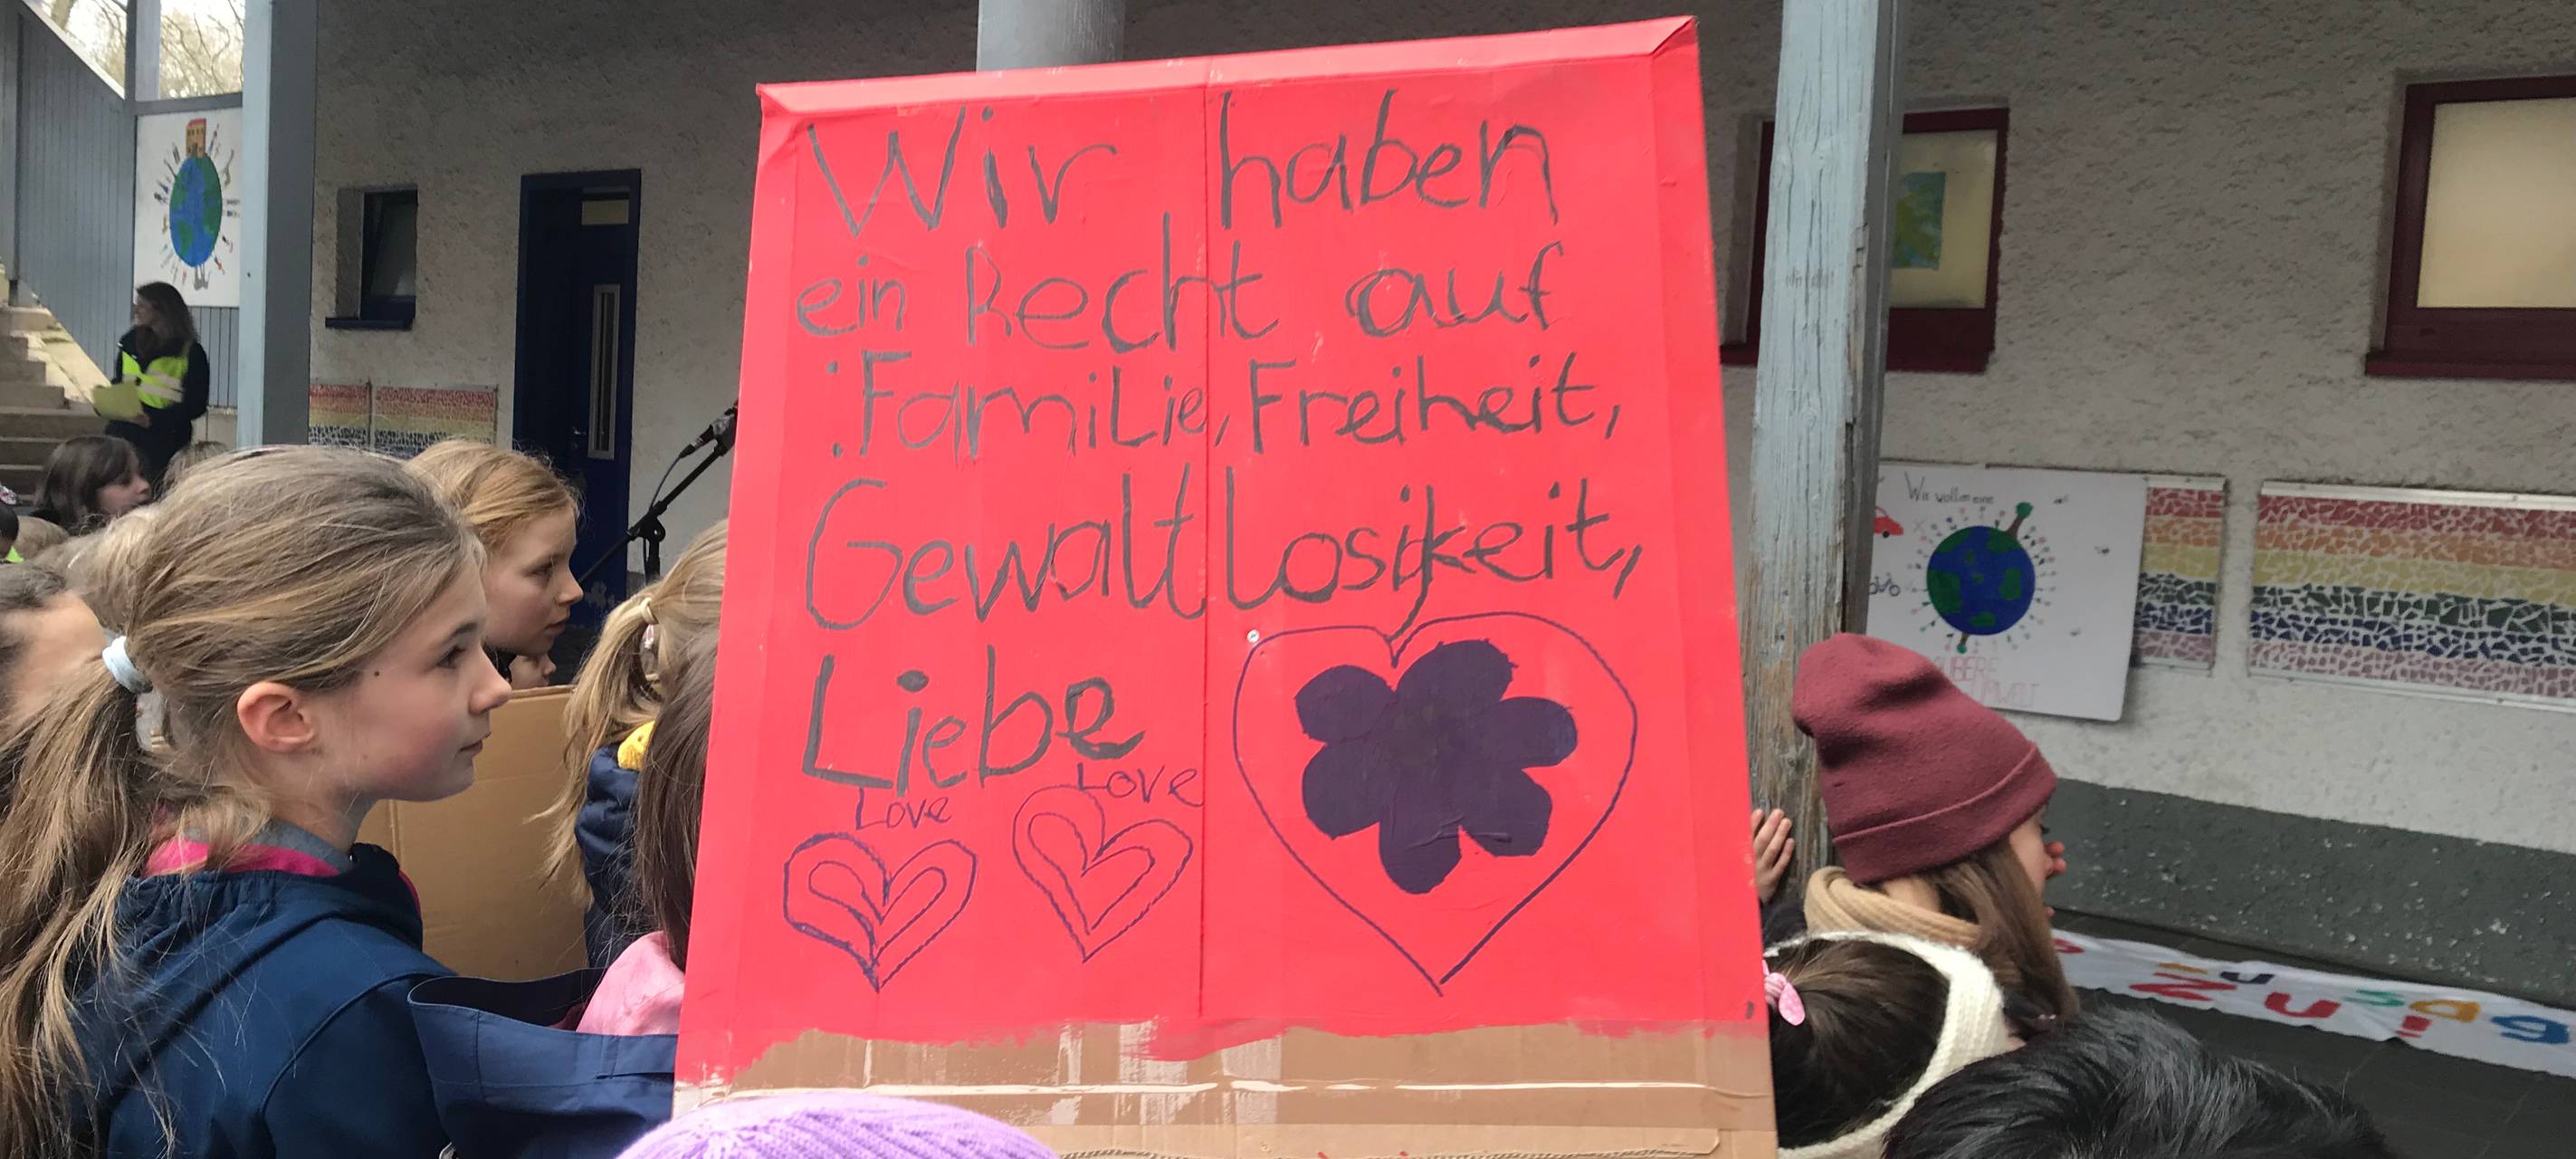 Wir haben
ein Recht auf
:Familie, Freiheit,
Gewaltlosikeit,
Liebe
Love
Love
Wir wollen eine
zu!